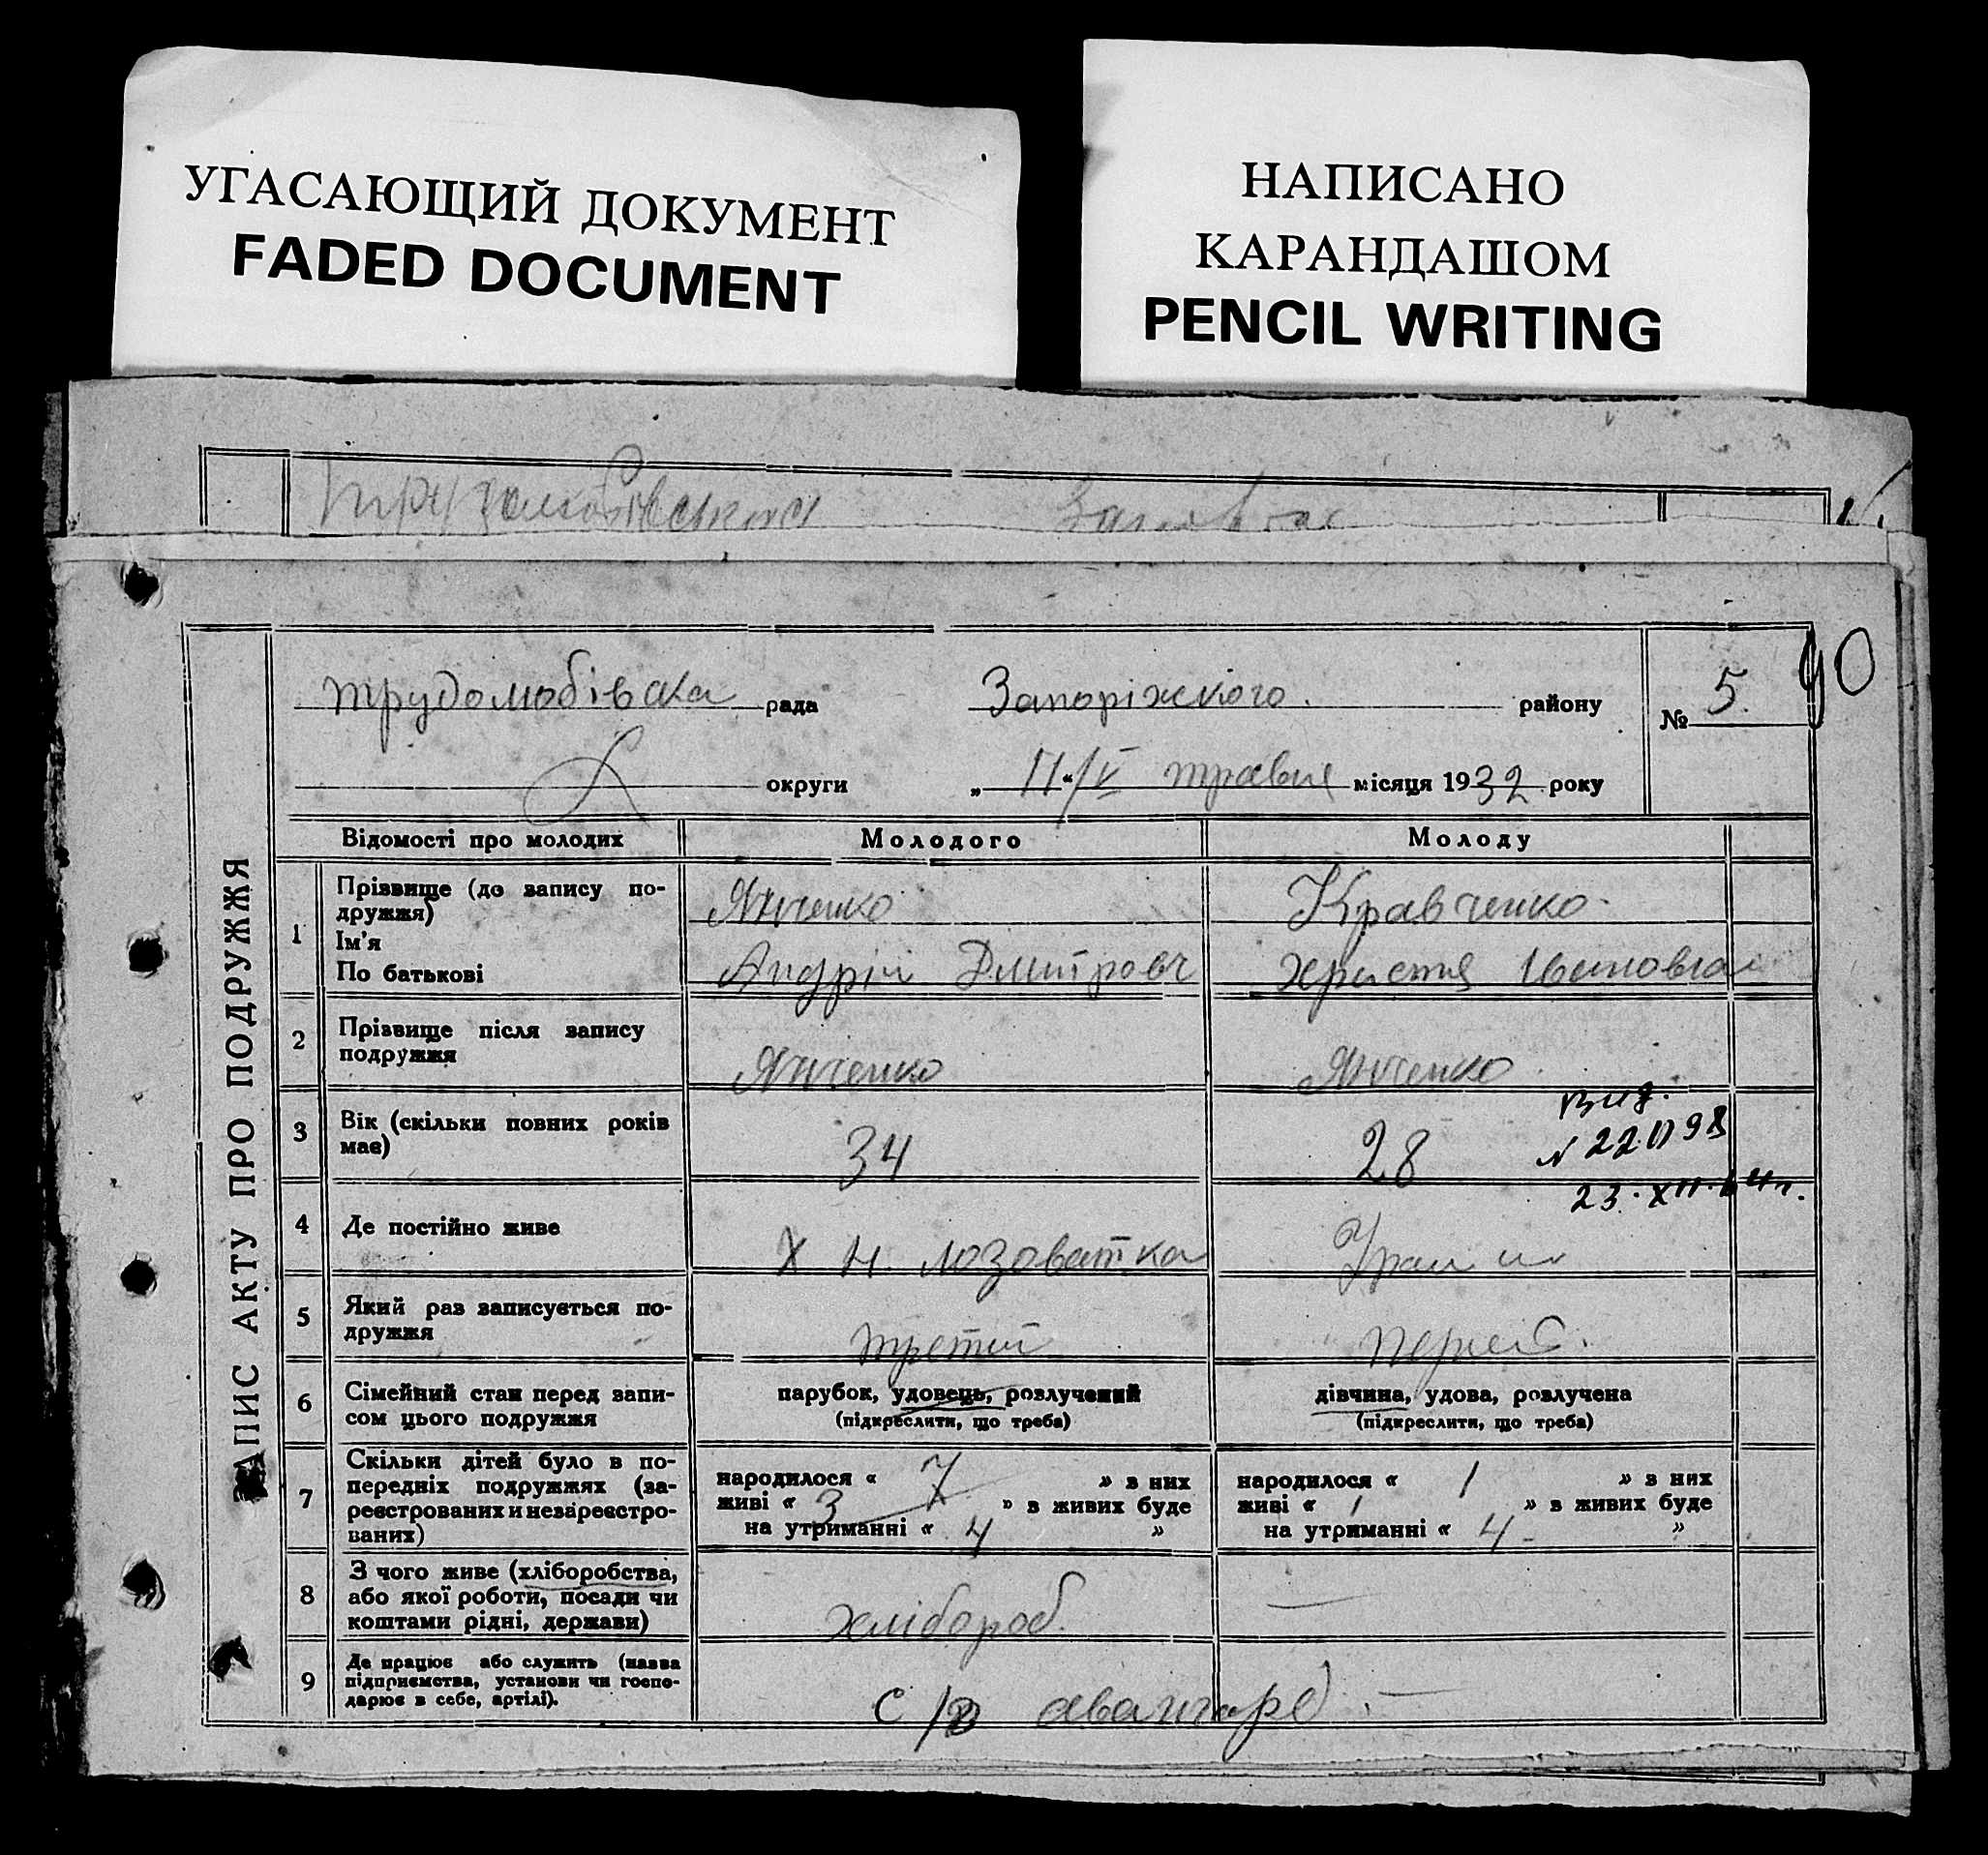 УГАСАЮЩИЙ ДОКУМЕНТ
FADED DOCUMENT
НАПИСАНО
КАРАНДАШОМ
PENCIL WRITING
ЗАПИС АКТУ ПРО ПОДРУЖЖЯ
трудолюбівска рада Запоріжского. району № 5. 90
округи „ 11 “/V травня місяця 1932 року
Відомості про молодих Молодого Молоду
1 Прізвище (до запису по-
дружжя) Янченко Кравченко
Ім'я
По батькові Андрій Дмитрович Христя Ивановна
2 Прізвище після запису
подружжя Янченко Янченко
3 Вік (скільки повних років
має) 34 28
23. XII.
4 Де постійно живе Х Н. Лозоватка
5 Який раз записується по-
дружжя третий
6 Сімейний стан перед запи-
сом цього подружжя парубок, удовець, розлучений дівчина, удова, розлучена
(підкреслити, що треба) (підкреслити, що треба)
7 Скільки дітей було в по-
передніх подружжях (за-
реєстрованих и незареєстро-
ваних)
народилося « 7 » з них народилося « 1 » з них
живі « 3 » в живих буде живі « 1 » в живих буде
на утриманні « 4 » на утриманні « 4 - »
8 З чого живе (хліборобства,
або якої роботи, посади чи
коштами рідні, держави) хлібороб. —
9 Де працює або служить (назва
підприємства, установи чи госпо-
дарює в себе, артілі). авангард. —